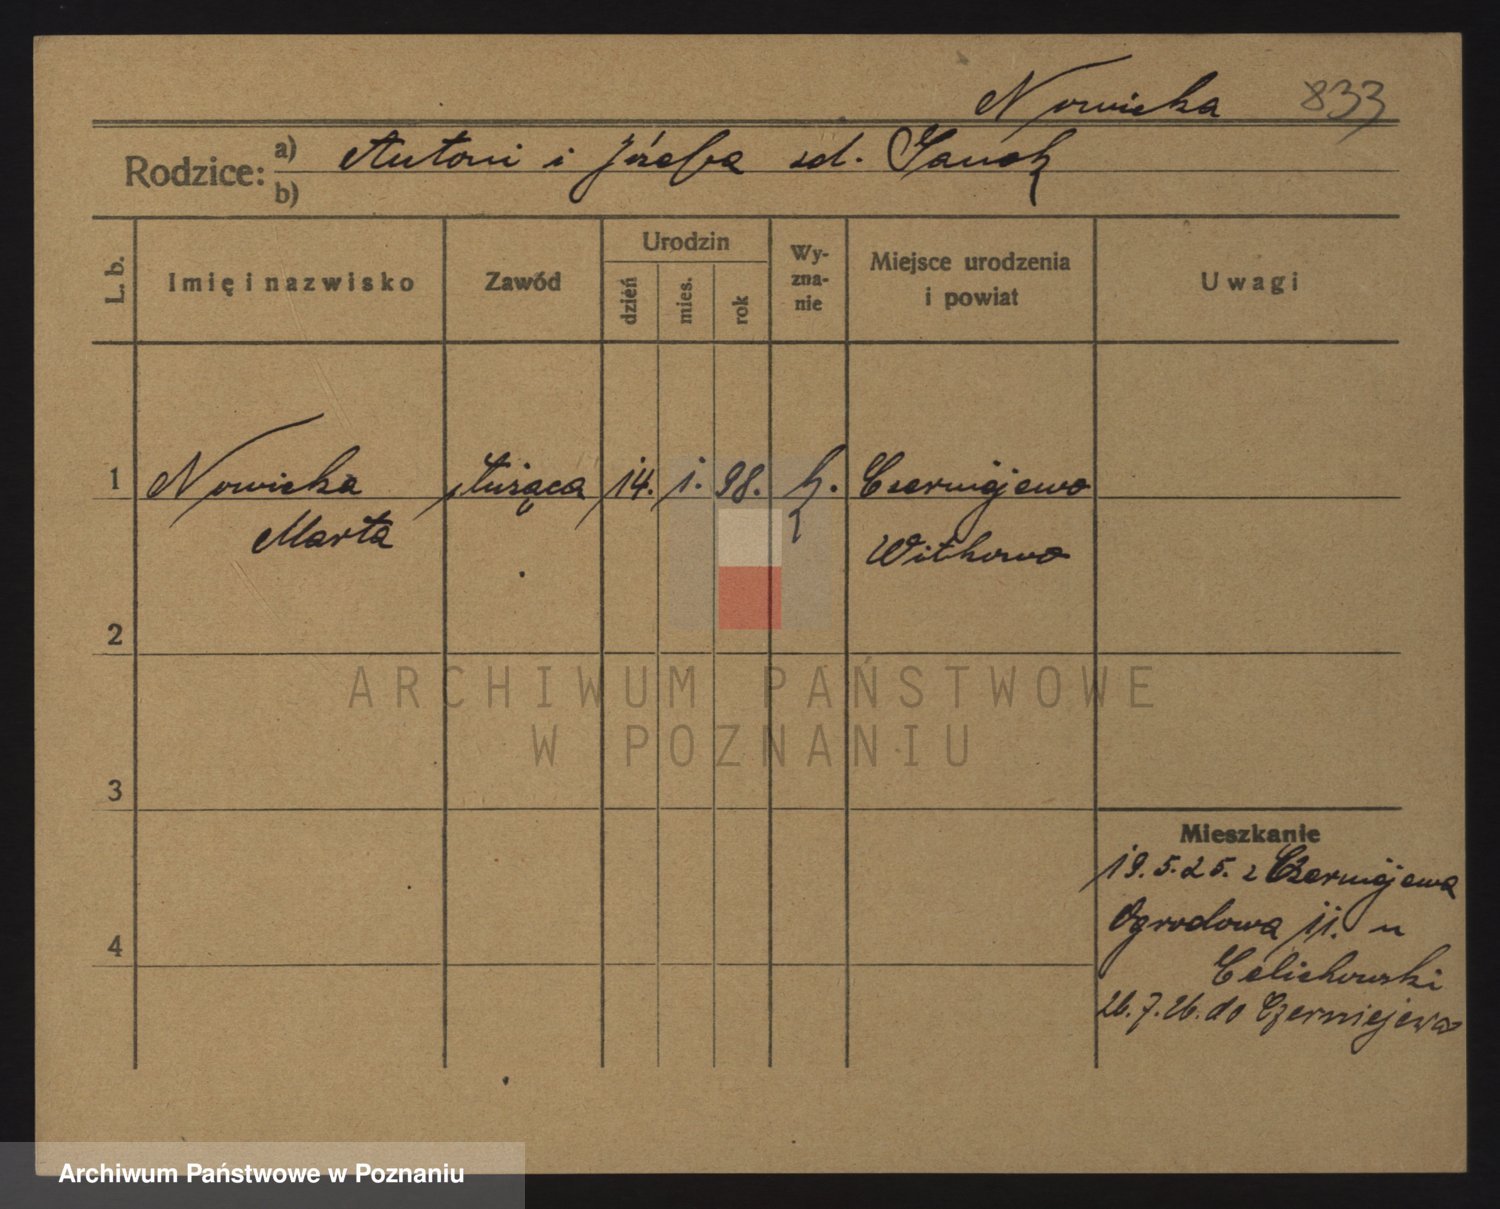 Nowicka 833
Rodzice: a) Antoni i Józefa zd.
b)
L. b. Imię i nazwisko Zawód Urodzin dzień mies. rok Wy-zna-nie Miejsce urodzenia i powiat Uwagi
1 Nowicka służąca 14. 1. 98. k. Czerniejewo
Marta Witkowo
2
ARCHIWUM PAŃSTWOWE
W POZNANIU
3
Mieszkanie
19.5.25. z Czerniejewa
Ogrodowa 11. u
4
Celichowski
26.7.26. do Czerniejewa
Archiwum Państwowe w Poznaniu